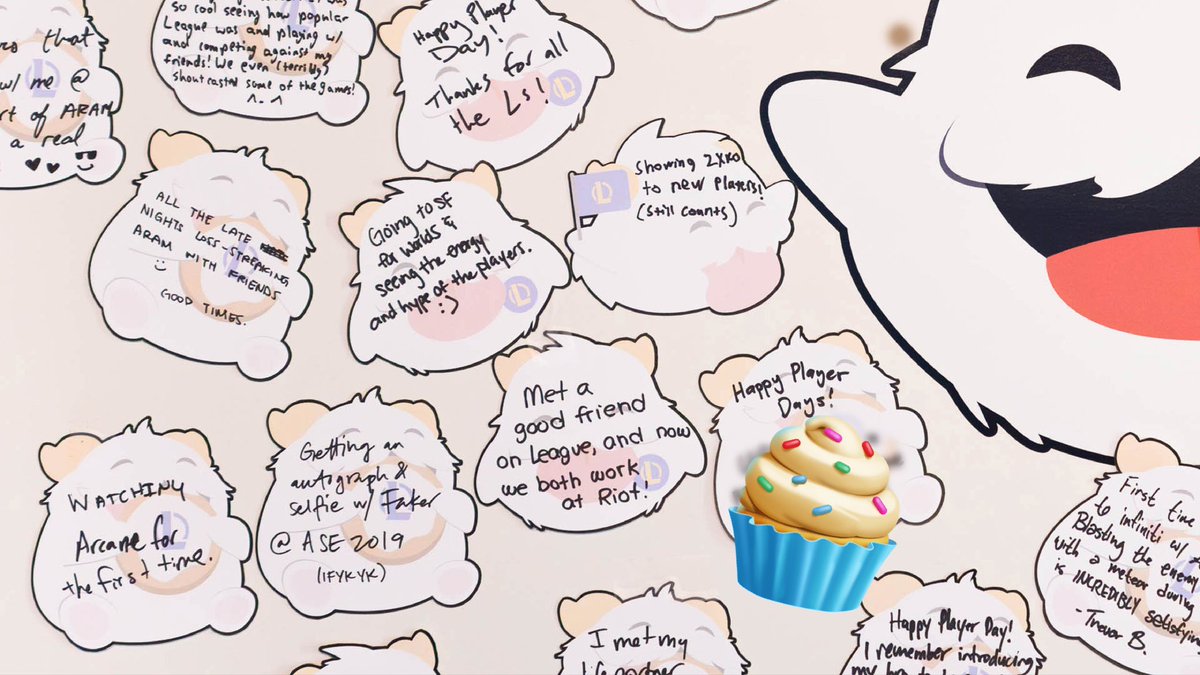 so cool seeing how popular
League was and playing w/
and competing against my
friends! We even (terribly)
shoutcasted some of the games!
^-^
Happy Player
Day!
Thanks for all
the Ls!
that
w/ me @
of ARAM
a real
Showing 2XKO
to new players!
(still counts)
ALL THE LATE
NIGHTS LOSS-STREAKING
ARAM WITH FRIENDS
GOOD TIMES.
Going to SF
for worlds &
seeing the energy
and hype of the players.
:>
Met a
good friend
on League, and now
we both work
at Riot!
Happy Player
Days!
WATCHING
Arcane for
the first time.
Getting an
autograph &
selfie w/ Faker
@ ASE 2019
(IFYKYK)
First time
to infiniti w/
Blasting the enemy
with a meteor during
is INCREDIBLY satisfying
- Trevor B.
I met my
Happy Player Day!
I remember introducing
my